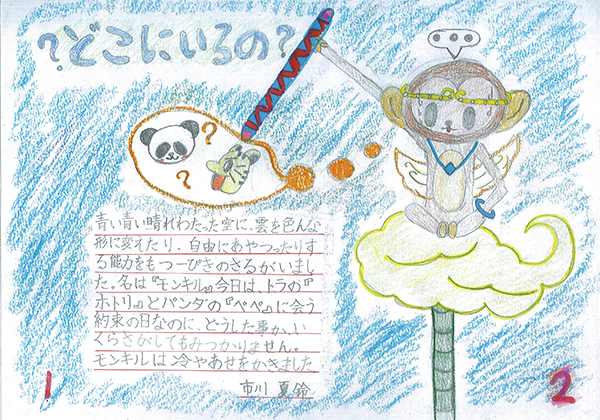 ?どこにいるの?
?
?
青い青い晴れわたった空に、雲を色んな
形に変えたり、自由にあやつったりす
る能力をもつ一ぴきのさるがいまし
た。名は『モンキル』。今日は、トラの『
ホトリ』とパンダの『ペペ』に会う
約束の日なのに、どうした事か、い
くらさがしてもみつかりません。
モンキルは冷やあせをかきました
市川 夏鈴
1
2